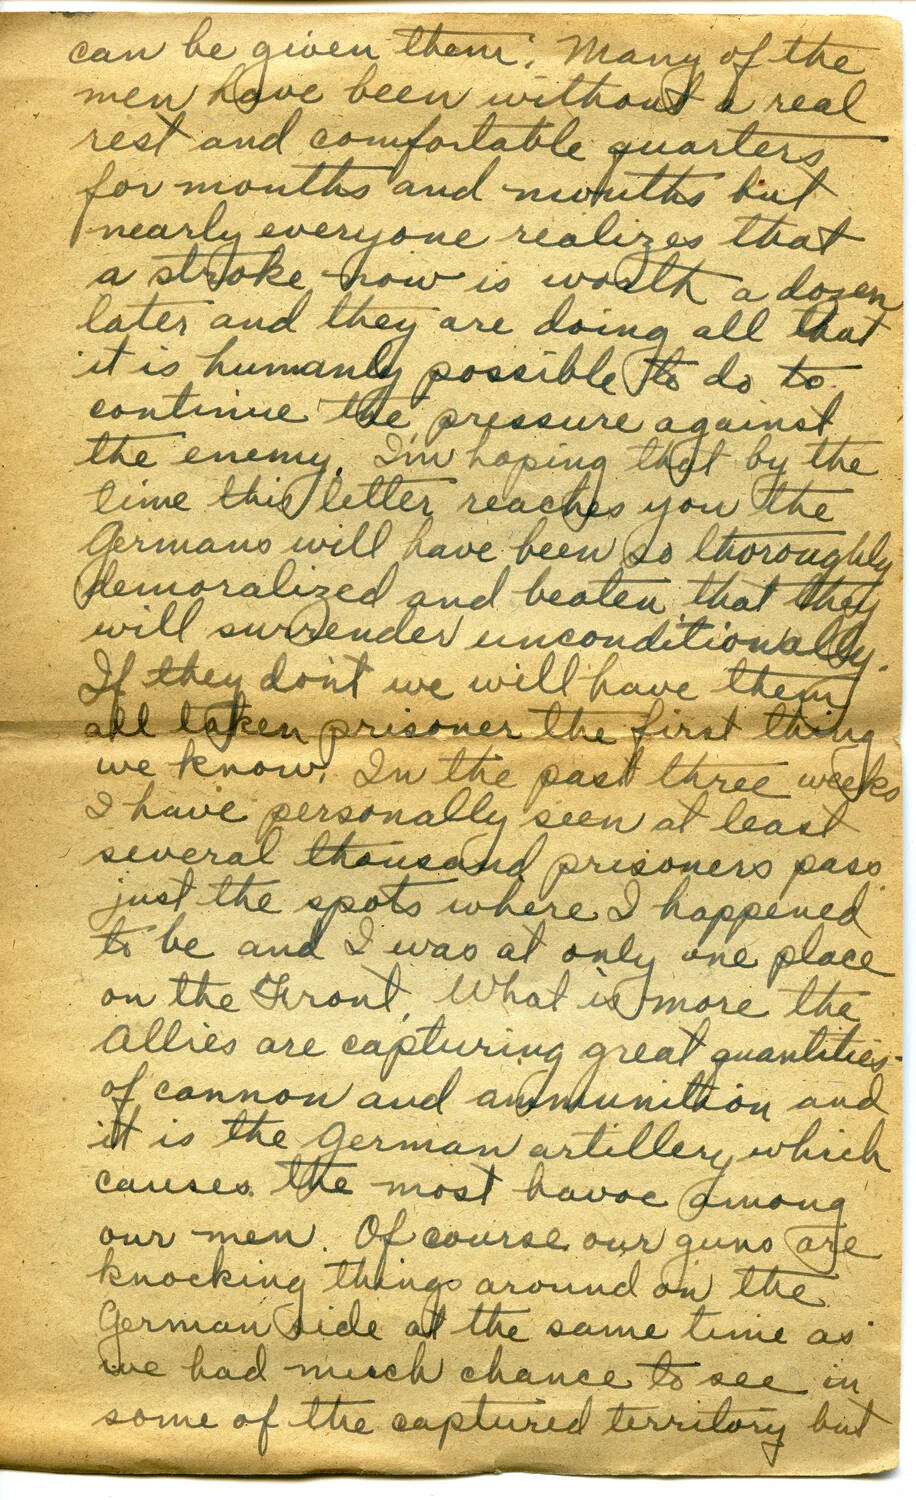 can be given them. Many of the
men have been without a real
rest and comfortable quarters
for months and months but
nearly everyone realizes that
a stroke now is worth a dozen
later and they are doing all that
it is humanly possible to do to
continue the pressure against
the enemy. I'm hoping that by the
time this letter reaches you the
Germans will have been so thoroughly
demoralized and beaten that they
will surrender unconditionally.
If they don't we will have them
all taken prisoner the first thing
we know. In the past three weeks
I have personally seen at least
several thousand prisoners pass
just the spots where I happened
to be and I was at only one place
on the Front. What is more the
Allies are capturing great quantities
of cannon and ammunition and
it is the German artillery which
causes the most havoc among
our men. Of course our guns are
knocking things around on the
German side at the same time as
we had much chance to see in
some of the captured territory but